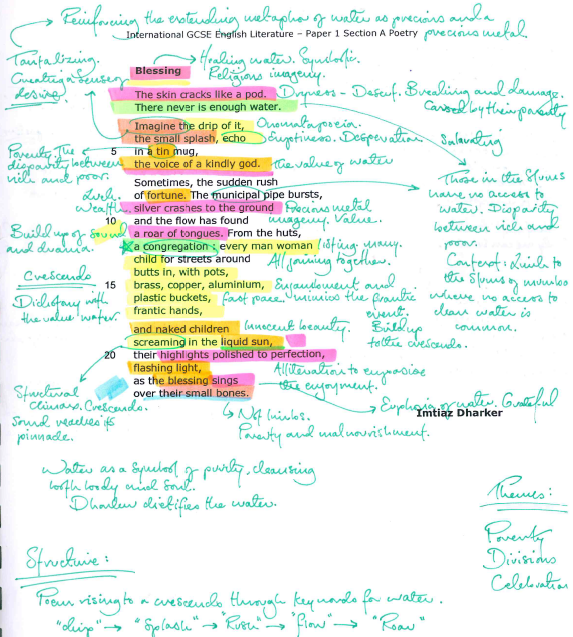 Reinforcing the extending metaphor of water as precious and a
International GCSE English Literature – Paper 1 Section A Poetry
precious metal.
Tantalizing.
Creating a sense of
desire
Healing water. Symbolic.
Religious imagery.
Blessing
The skin cracks like a pod.
Dryness - Desert. Breaking and damage.
There never is enough water.
Caused by their poverty
Imagine the drip of it,
Onomatopoeia.
the small splash, echo
Emptiness. Desperation
Salavating
5
in a tin mug,
the voice of a kindly god.
the value of water
Poverty. The
disparity between
rich and poor.
Sometimes, the sudden rush
of fortune. The municipal pipe bursts,
silver crashes to the ground
Precious metal
10
and the flow has found
imagery. Value.
a roar of tongues. From the huts,
a congregation : every man woman
listing many.
child for streets around
All joining together.
butts in, with pots,
15
brass, copper, aluminium,
plastic buckets,
fast pace mimics the frantic
frantic hands,
event.
Luck.
wealth.
Build up of sound
and drama.
Crescendo
with
the value water.
Those in the slums
have no access to
water. Disparity
between rich and
poor.
Context: Links to
the slums of mumbai
where no access to
clean water is
common.
and naked children
Innocent beauty.
Build up
screaming in the liquid sun,
to the crescendo.
20
their highlights polished to perfection,
flashing light,
Alliteration to empasise
as the blessing sings
the enjoyment.
over their small bones.
Structural
climax. Crescendo.
sound reaches its
pinnacle.
Euphoria of water. Grateful
Imtiaz Dharker
Not limbs.
Poverty and malnourishment.
Water as a symbol of purity, cleansing
both body and soul.
Dharker dietifies the water.
Themes:
Poverty
Divisions
Celebration
Structure:
Poem rising to a crescendo through key words for water.
"drip" → "Splash" → "Rush" → "flow" → "Roar"